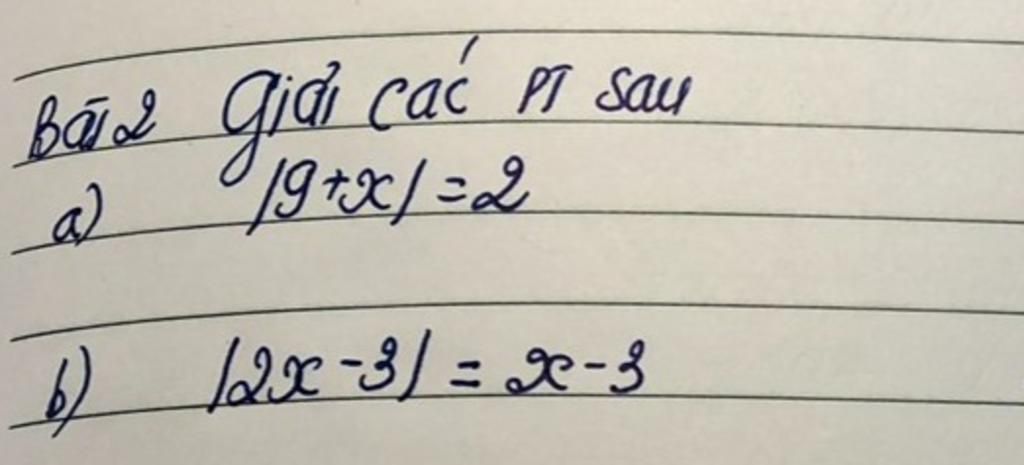 Bài 2 Giải các PT sau
a) |9+x| = 2
b) |2x-3| = x-3